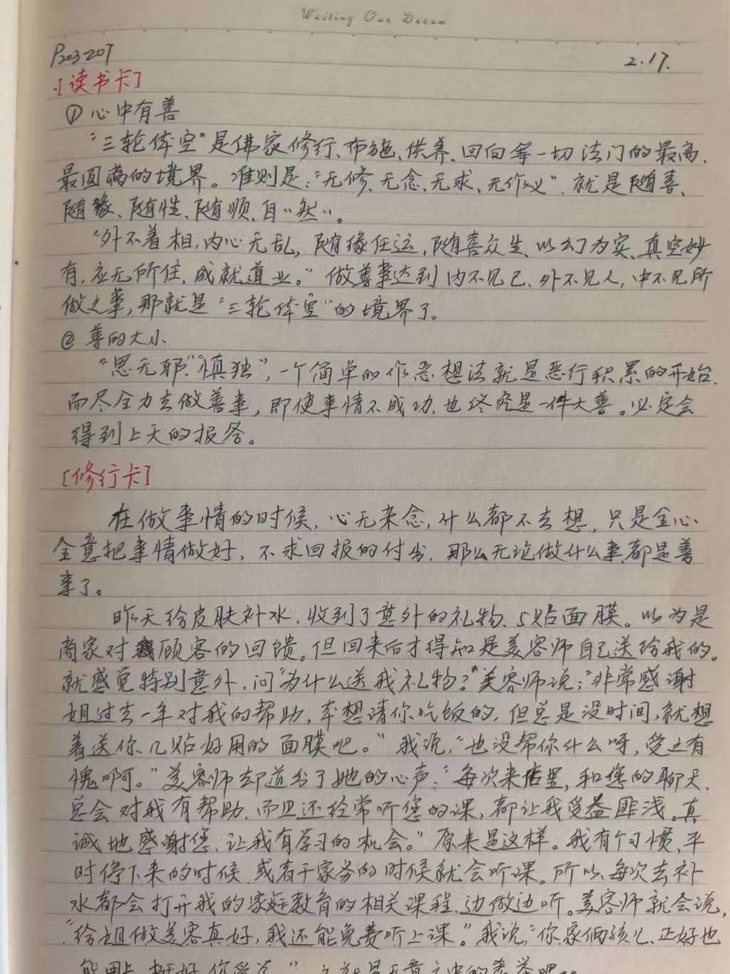 Waiting Our Dream
P203-207 2.17.
[读书卡]
① 心中有善
"三轮体空"是佛家修行、布施、供养、回向等一切法门的最高、
最圆满的境界。准则是:"无修、无念、无求、无作以",就是随喜、
随缘、随性、随顺、自"然"。
"外不着相,内心无乱,随缘任运,随喜众生,以幻为实,真空妙
有,应无所住,成就道业。"做善事达到内不见己、外不见人,中不见所
做之事,那就是"三轮体空"的境界了。
② 善的大小
"思无邪""慎独",一个简单的作恶想法就是恶行积累的开始.
而尽全力去做善事,即使事情不成功,也终究是一件大善。必定会
得到上天的报答。
[修行卡]
在做事情的时候,心无杂念,什么都不去想,只是全心
全意把事情做好,不求回报的付出,那么无论做什么事都是善
事了。
昨天给皮肤补水,收到了意外的礼物、5贴面膜。以为是
商家对顾客的回馈。但回来后才得知是美容师自己送给我的。
就感觉特别意外,问"为什么送我礼物?"美容师说:"非常感谢
姐过去一年对我的帮助,本想请你吃饭的,但总是没时间,就想
着送你几贴好用的面膜吧。"我说,"也没帮你什么呀,受之有
愧啊。"美容师却道出了她的心声:"每次来店里,和您的聊天,
总会对我有帮助,而且还经常听您的课,都让我受益匪浅。真
诚地感谢您,让我有学习的机会。"原来是这样。我有个习惯,平
时停下来的时候,或者干家务的时候就会听课。所以,每次去补
水都会打开我的家庭教育的相关课程,边做边听。美容师就会说,
"给姐做美容真好,我还能免费听上课。"我说:"你家俩孩儿,正好也
能用上